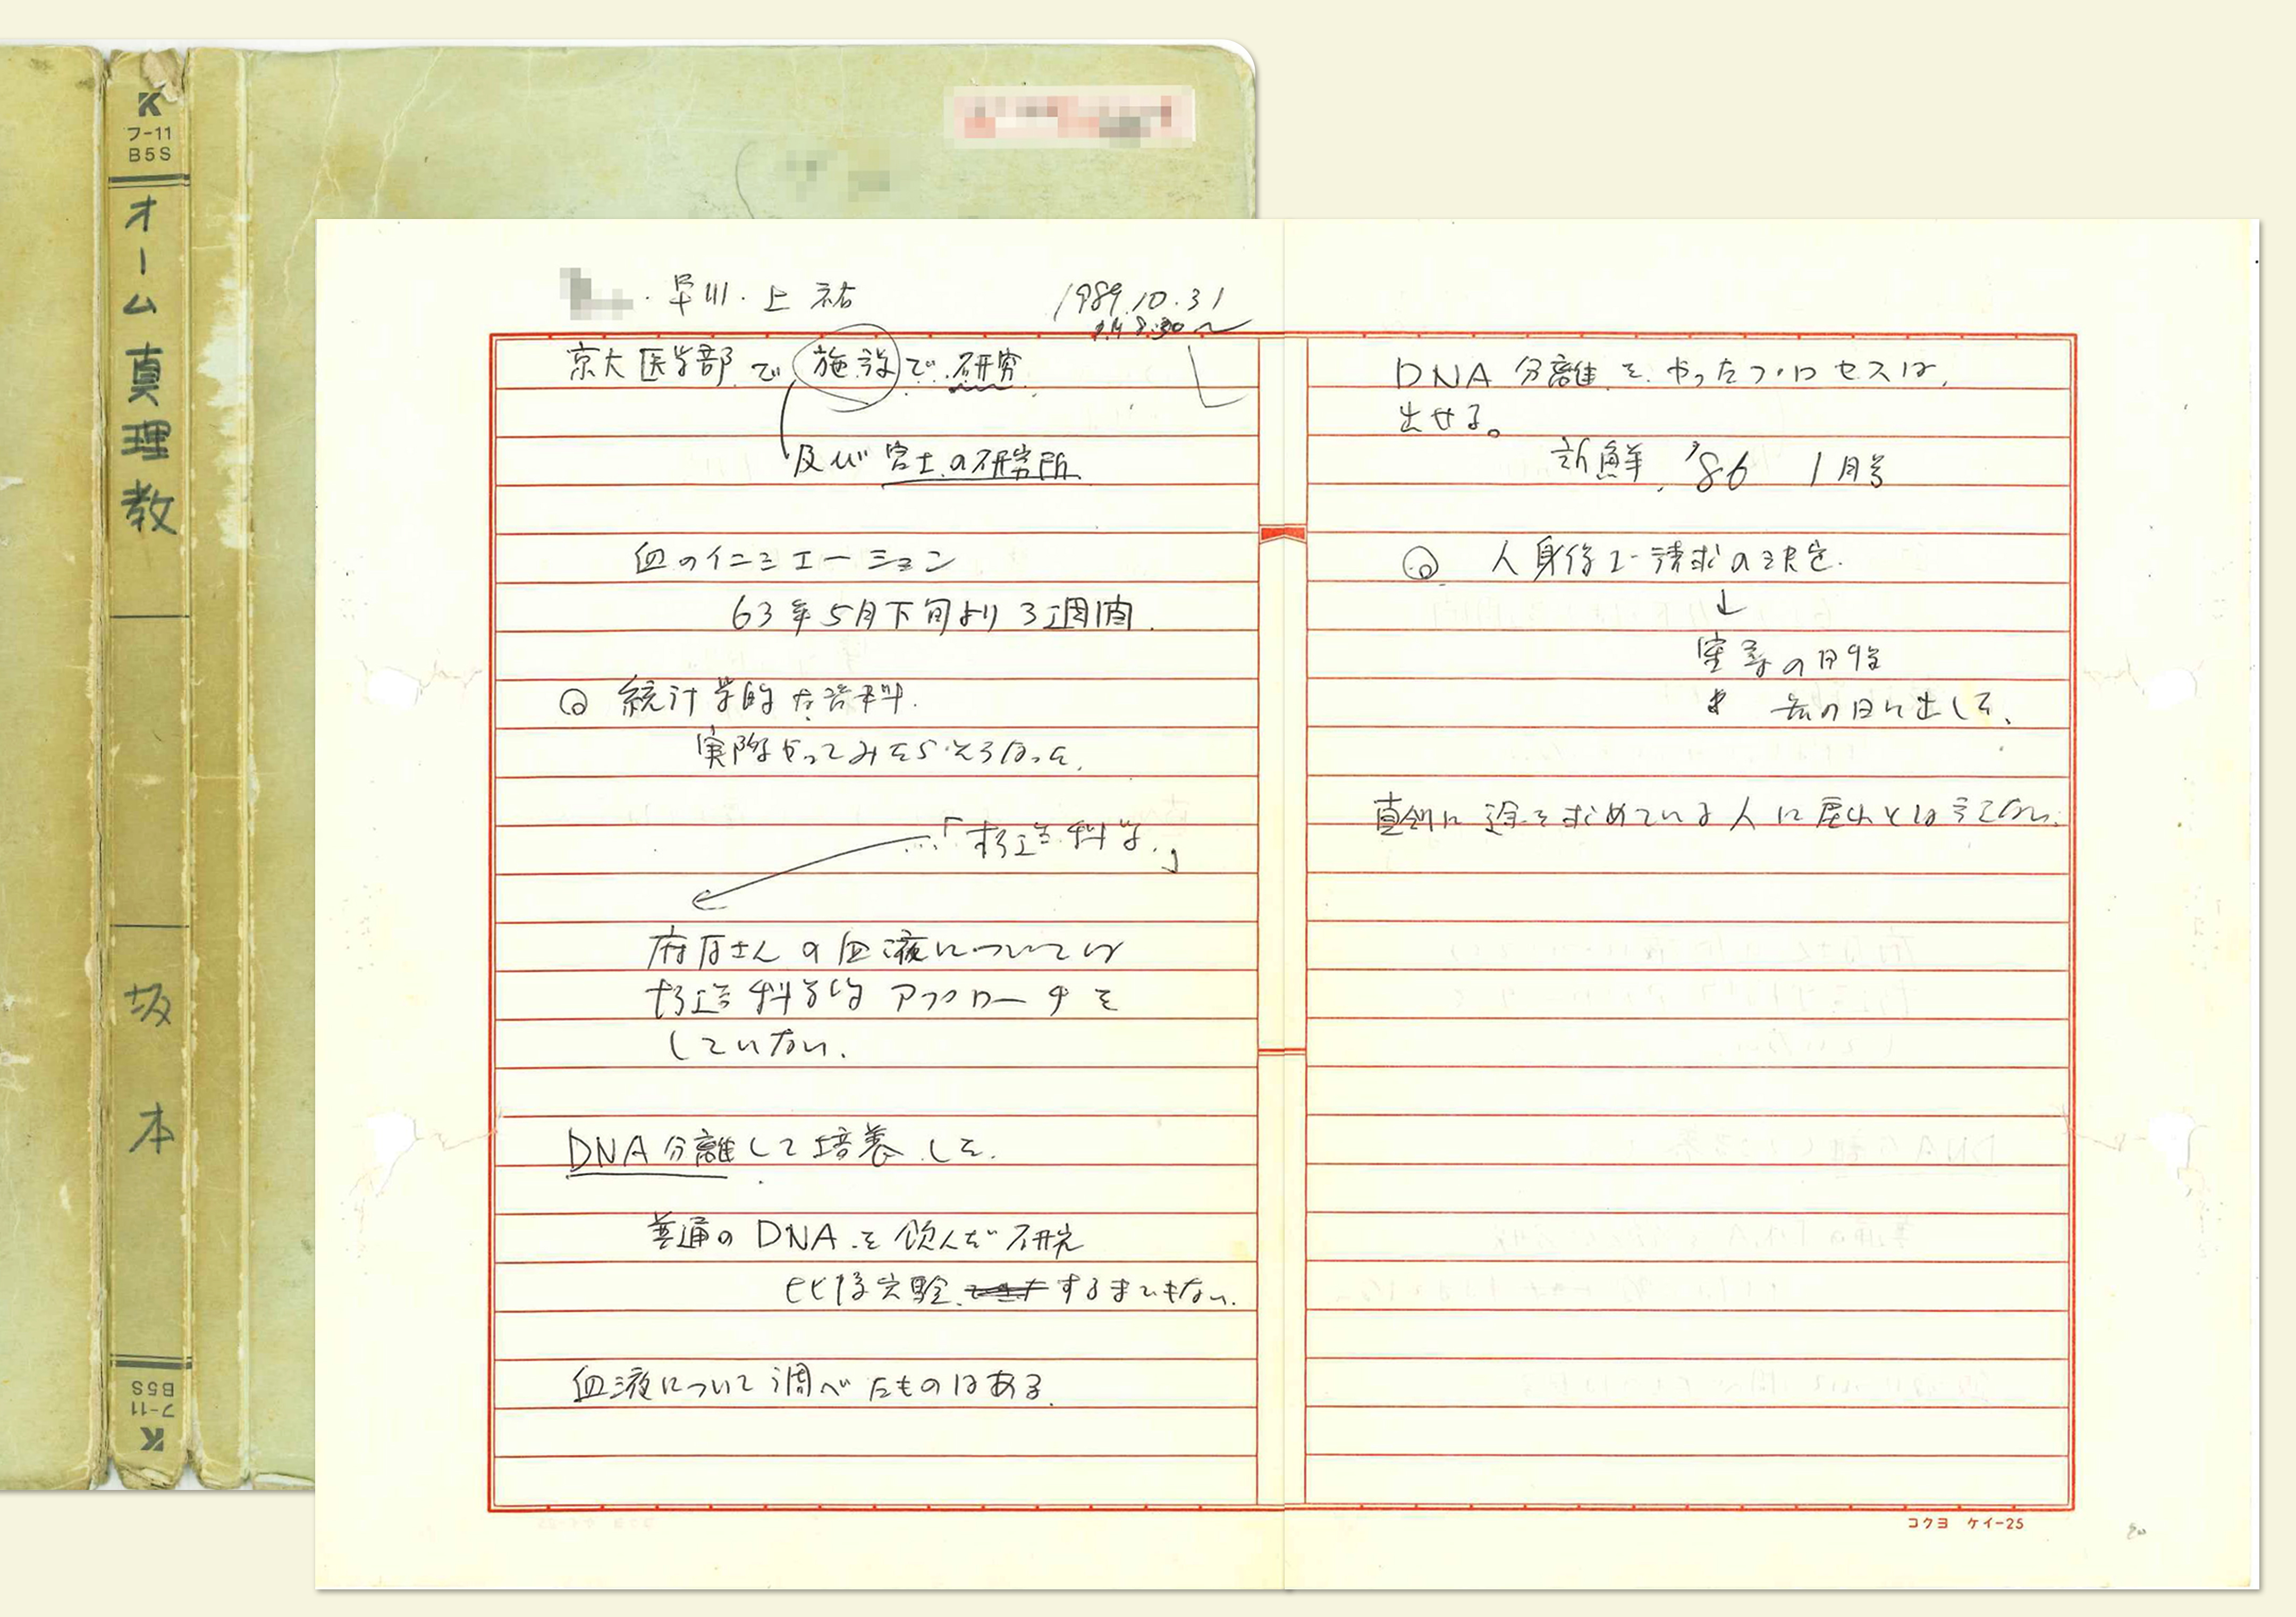 K
フ-11
B5S
オーム真理教
坂本
B5S
フ-11
K
・早川・上祐
1989.10.31
京大医学部で施設で研究
及び富士の研究所
血のイニシエーション
63年5月下旬より3週間
統計学的な資料.
実際やってみたらそうなった.
府さんの血液については
アプローチを
していない.
DNA分離して培養した.
普通のDNAを飲んだ研究
比較実験するまでもない.
血液について調べたものはある.
DNA分離をやったプロセスは、
出せる。
新鮮 '86 1月号
人身保護請求の決定.
↓
の日に出した、
真剣に道を求めている人に とは言えない.
コクヨ ケイ-25